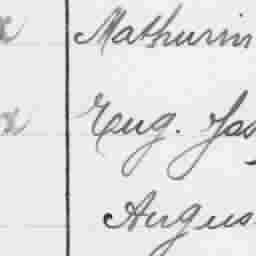 x Mathurin
x Eug. Jos
Augus